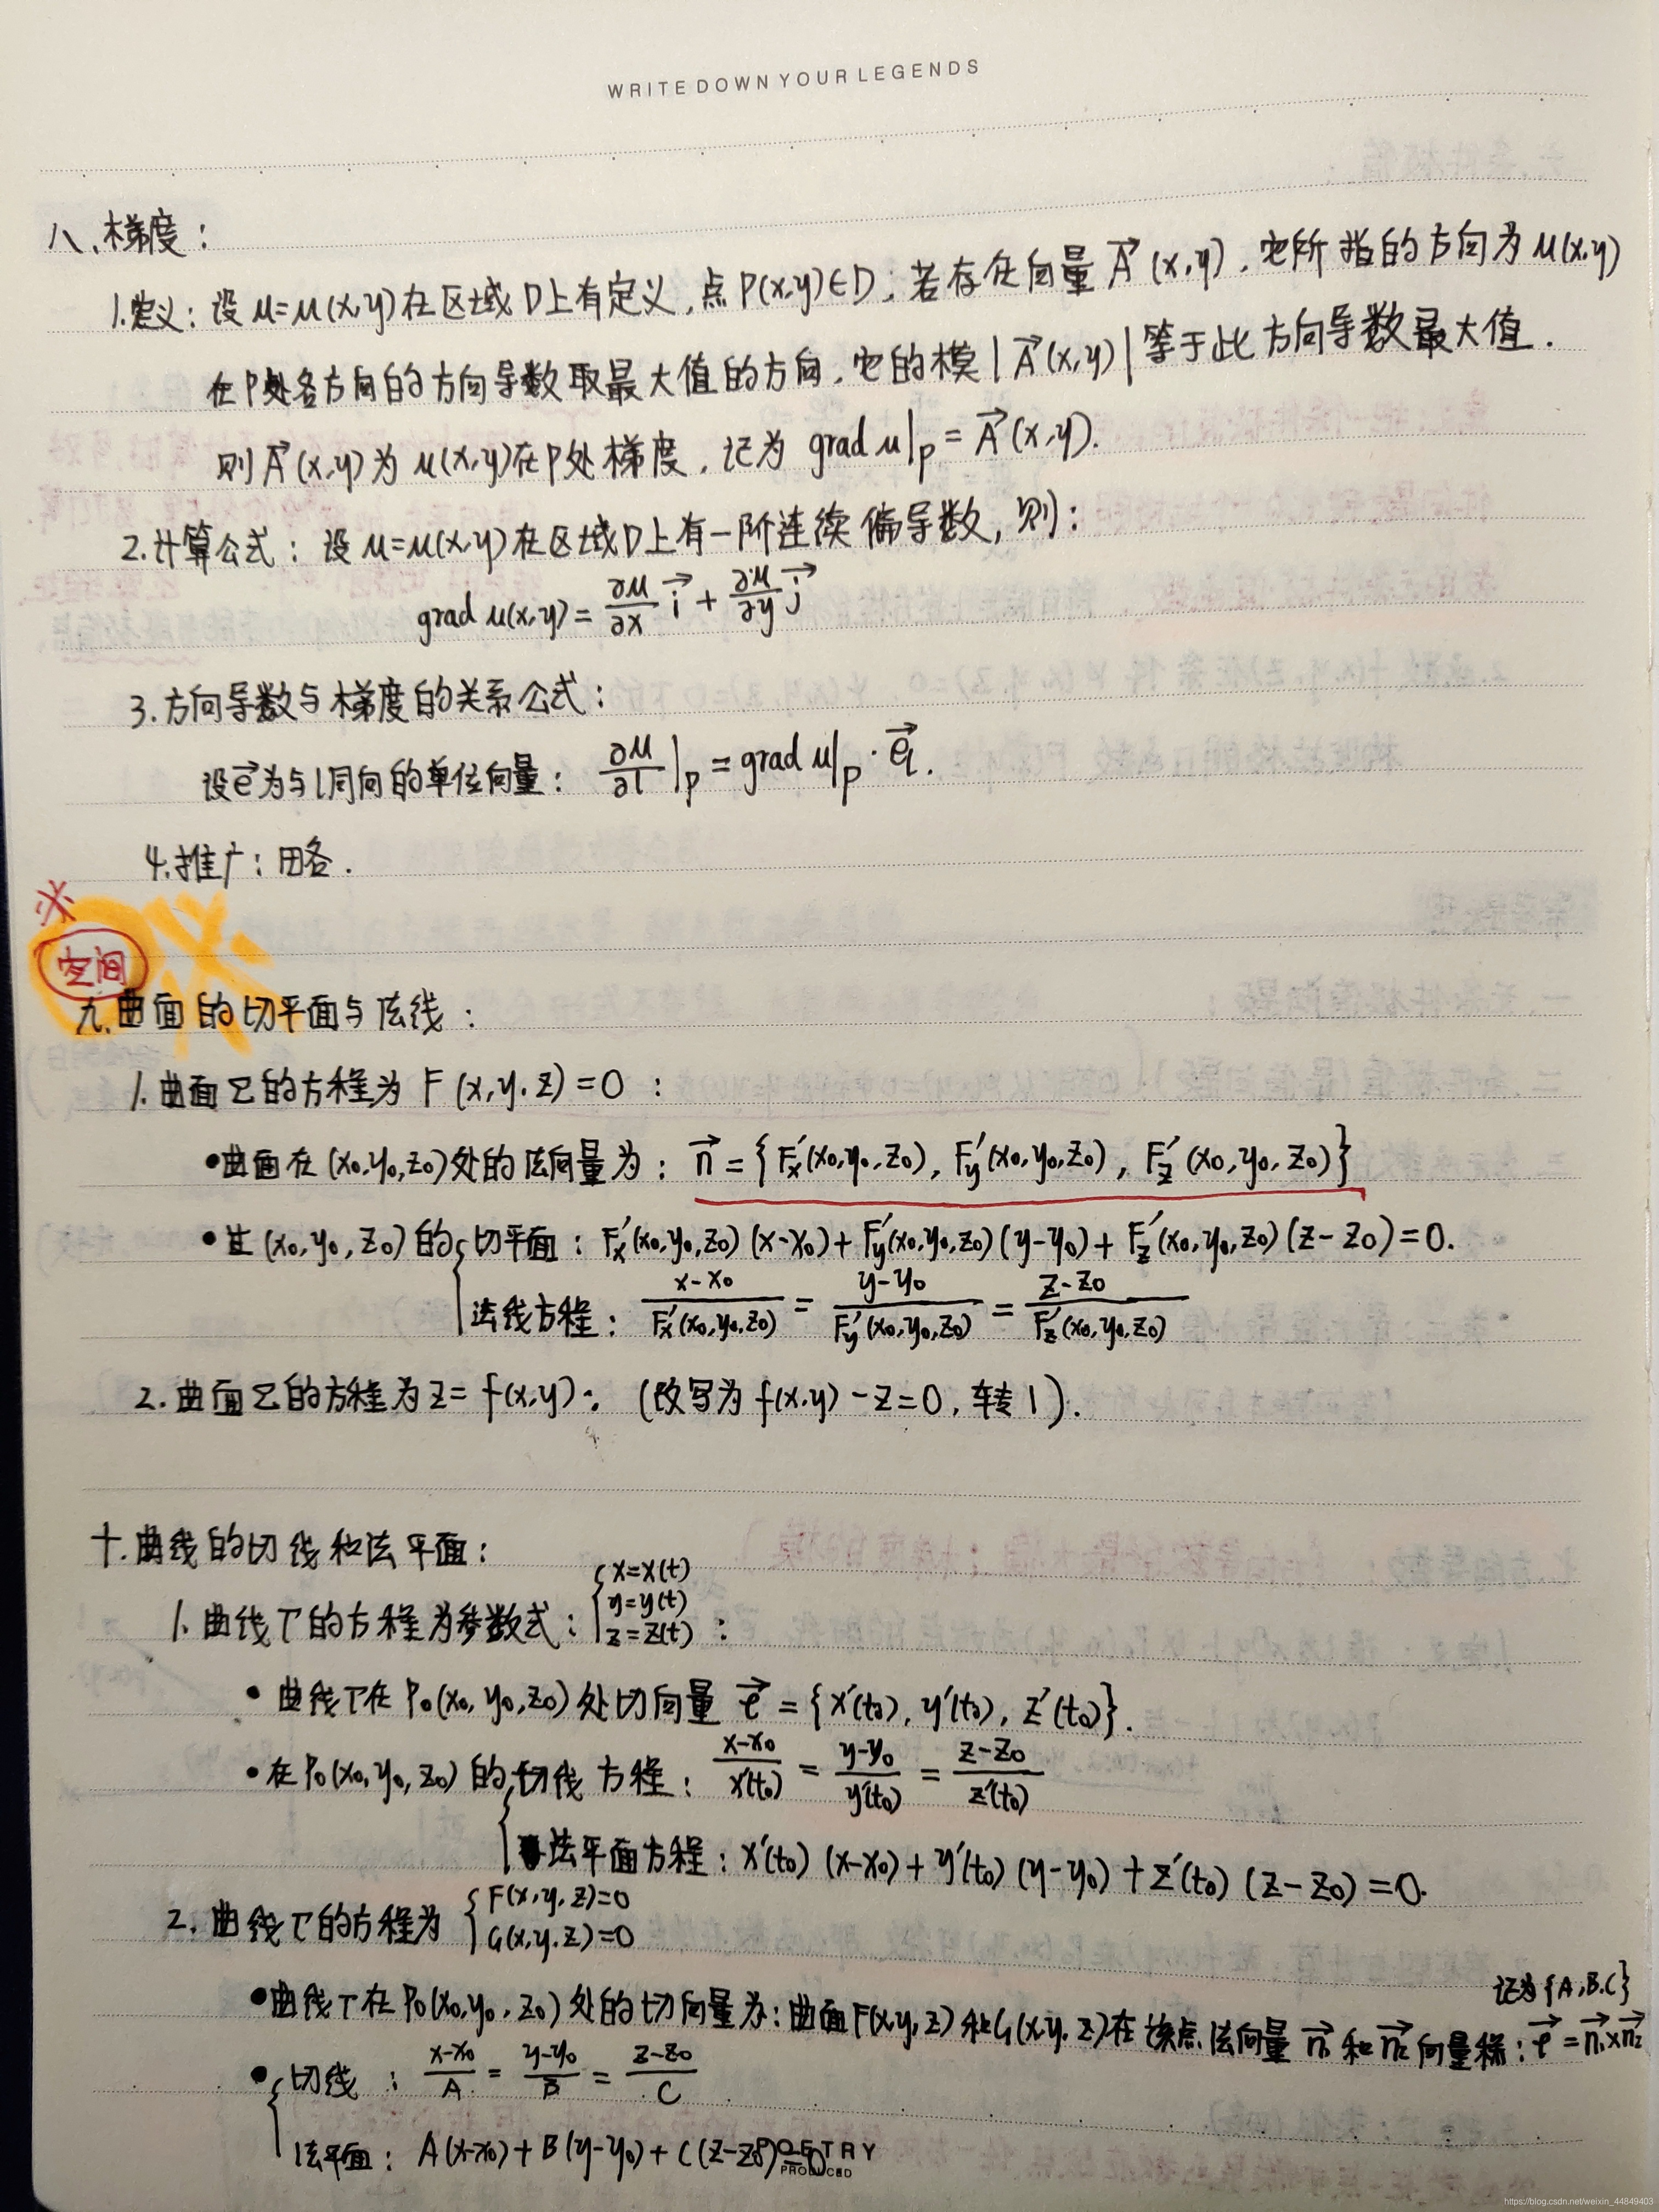 WRITE DOWN YOUR LEGENDS
八、梯度：
1.定义：设 u=u(x,y)在区域D上有定义，点P(x,y)∈D；若存在向量 A⃗(x,y)，它所指的方向为 u(x,y)
在P处各方向的方向导数取最大值的方向，它的模|A⃗(x,y)|等于此方向导数最大值．
则 A⃗(x,y)为 u(x,y)在P处梯度，记为 grad u|p = A⃗(x,y).
2.计算公式：设 u=u(x,y)在区域D上有一阶连续偏导数，则：
grad u(x,y) = ∂u/∂x i⃗ + ∂u/∂y j⃗
3.方向导数与梯度的关系公式：
设e⃗为与l同向的单位向量： ∂u/∂l|p = grad u|p · e⃗l.
4.推广：田各．
※
空间
九.曲面的切平面与法线：
1.曲面Σ的方程为 F(x,y,z)=0：
•曲面在(x0,y0,z0)处的法向量为：n⃗ = {F'x(x0,y0,z0), F'y(x0,y0,z0), F'z(x0,y0,z0)}
•过(x0,y0,z0)的{切平面：F'x(x0,y0,z0)(x-x0)+F'y(x0,y0,z0)(y-y0)+F'z(x0,y0,z0)(z-z0)=0.
法线方程：(x-x0)/F'x(x0,y0,z0) = (y-y0)/F'y(x0,y0,z0) = (z-z0)/F'z(x0,y0,z0)
2.曲面Σ的方程为z=f(x,y)：(改写为 f(x,y)-z=0, 转1).
十.曲线的切线和法平面：
1.曲线τ的方程为参数式：{x=x(t)
y=y(t)
z=z(t)：
•曲线τ在P0(x0,y0,z0)处切向量 τ⃗ = {x'(t0), y'(t0), z'(t0)}.
•在P0(x0,y0,z0)的{切线方程：(x-x0)/x'(t0) = (y-y0)/y'(t0) = (z-z0)/z'(t0)
法平面方程：x'(t0)(x-x0)+y'(t0)(y-y0)+z'(t0)(z-z0)=0.
2.曲线τ的方程为{F(x,y,z)=0
G(x,y,z)=0
记为{A,B,C}
•曲线τ在P0(x0,y0,z0)处的切向量为：曲面F(x,y,z)和G(x,y,z)在该点法向量n⃗1和n⃗2向量积：τ⃗=n⃗1×n⃗2
•{切线：(x-x0)/A = (y-y0)/B = (z-z0)/C
法平面：A(x-x0)+B(y-y0)+C(z-z0)=0
POETRY
PRODUCED
https://blog.csdn.net/weixin_44849403